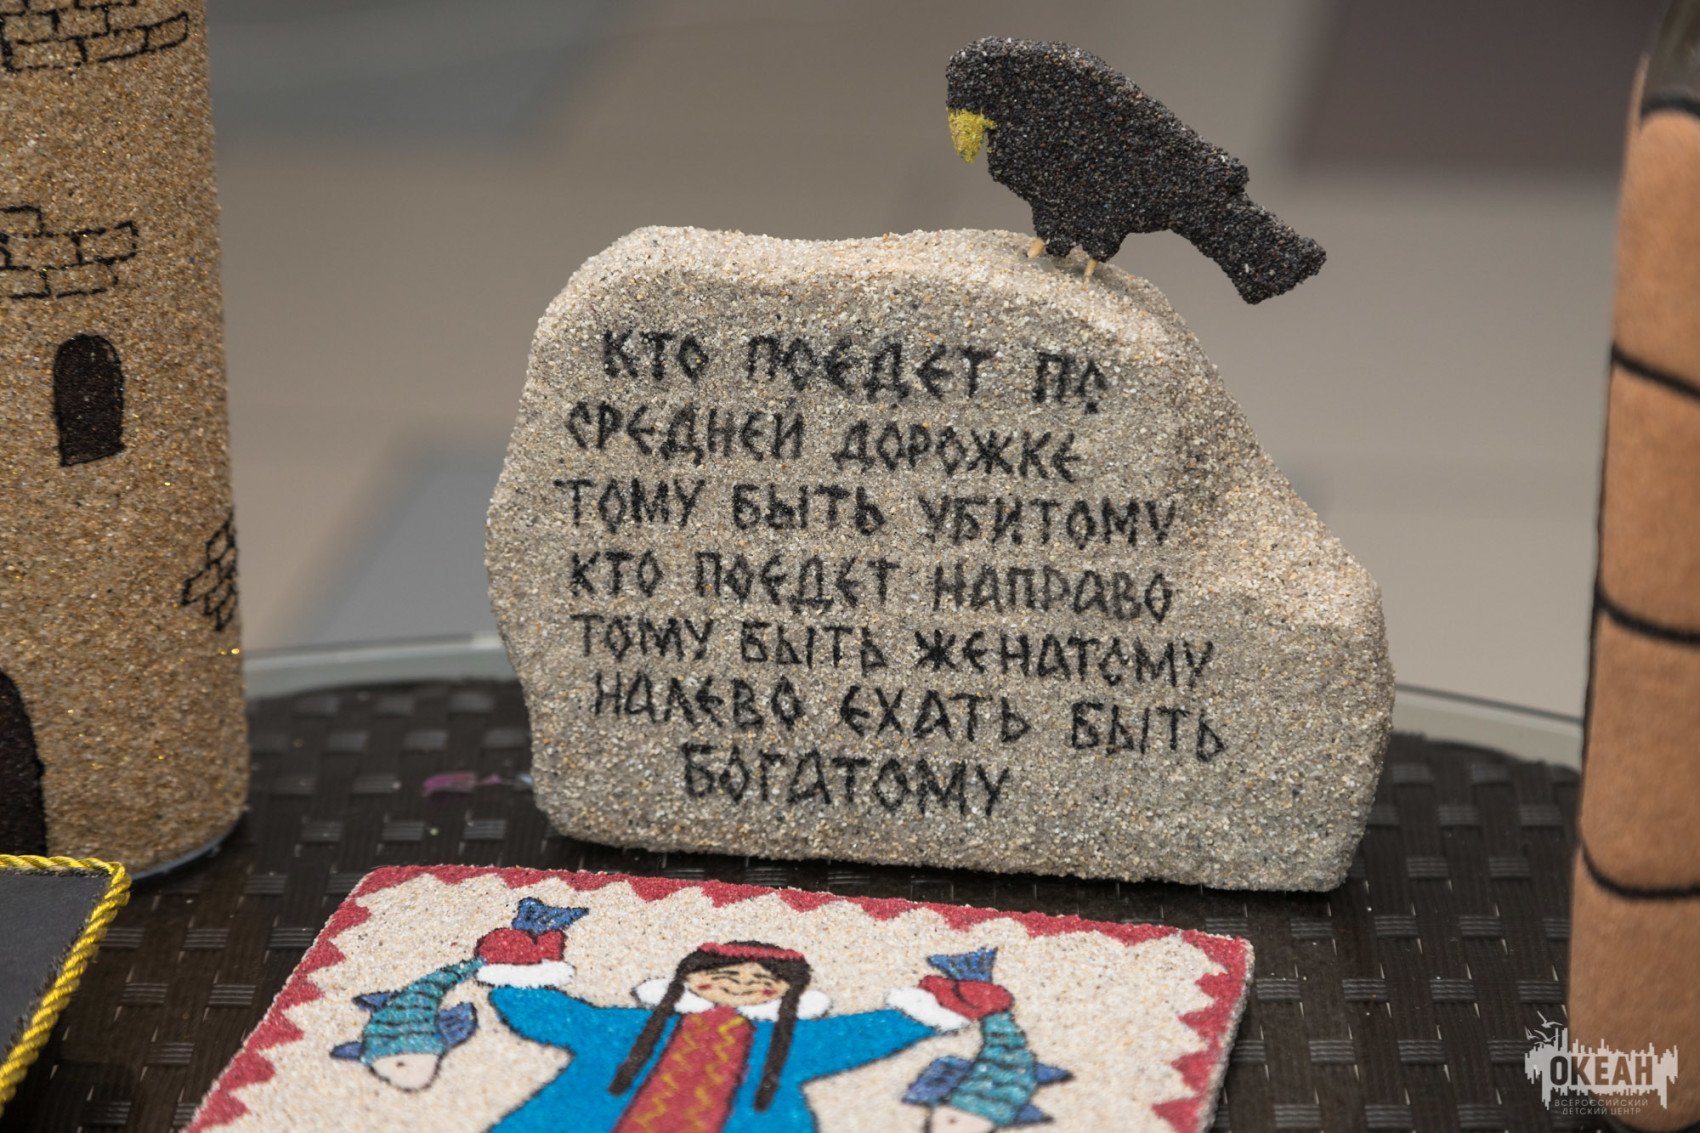 КТО ПОЕДЕТ ПО
СРЕДНЕЙ ДОРОЖКЕ
ТОМУ БЫТЬ УБИТОМУ
КТО ПОЕДЕТ НАПРАВО
ТОМУ БЫТЬ ЖЕНАТОМУ
НАЛЕВО ЕХАТЬ БЫТЬ
БОГАТОМУ
ОКЕАН
ВСЕРОССИЙСКИЙ
ДЕТСКИЙ ЦЕНТР